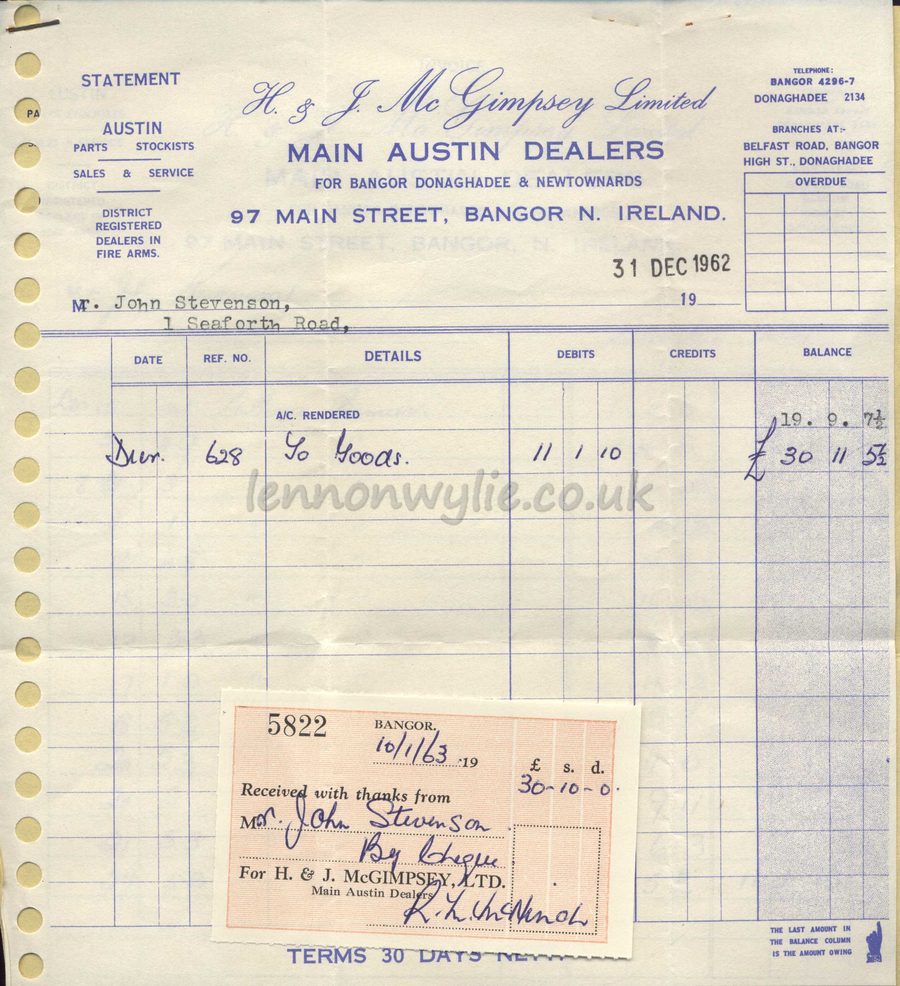 STATEMENT
AUSTIN
PARTS STOCKISTS
SALES & SERVICE
DISTRICT
REGISTERED
DEALERS IN
FIRE ARMS.
H. & J. McGimpsey Limited
MAIN AUSTIN DEALERS
FOR BANGOR DONAGHADEE & NEWTOWNARDS
97 MAIN STREET, BANGOR N. IRELAND.
TELEPHONE:
BANGOR 4296-7
DONAGHADEE 2134
BRANCHES AT:-
BELFAST ROAD, BANGOR
HIGH ST., DONAGHADEE
OVERDUE
PA
31 DEC 1962
19
Mr. John Stevenson,
1 Seaforth Road,
DATE REF. NO. DETAILS DEBITS CREDITS BALANCE
A/C. RENDERED 19. 9. 7½
628 To Goods. 11 1 10 £ 30 11 5½
lennonwylie.co.uk
5822 BANGOR.
10/1/63 19
£ s. d.
30-10-0.
Received with thanks from
Mr. John Stevenson
By Cheque
For H. & J. McGIMPSEY, LTD.
Main Austin Dealers
TERMS 30 DAYS
THE LAST AMOUNT IN
THE BALANCE COLUMN
IS THE AMOUNT OWING